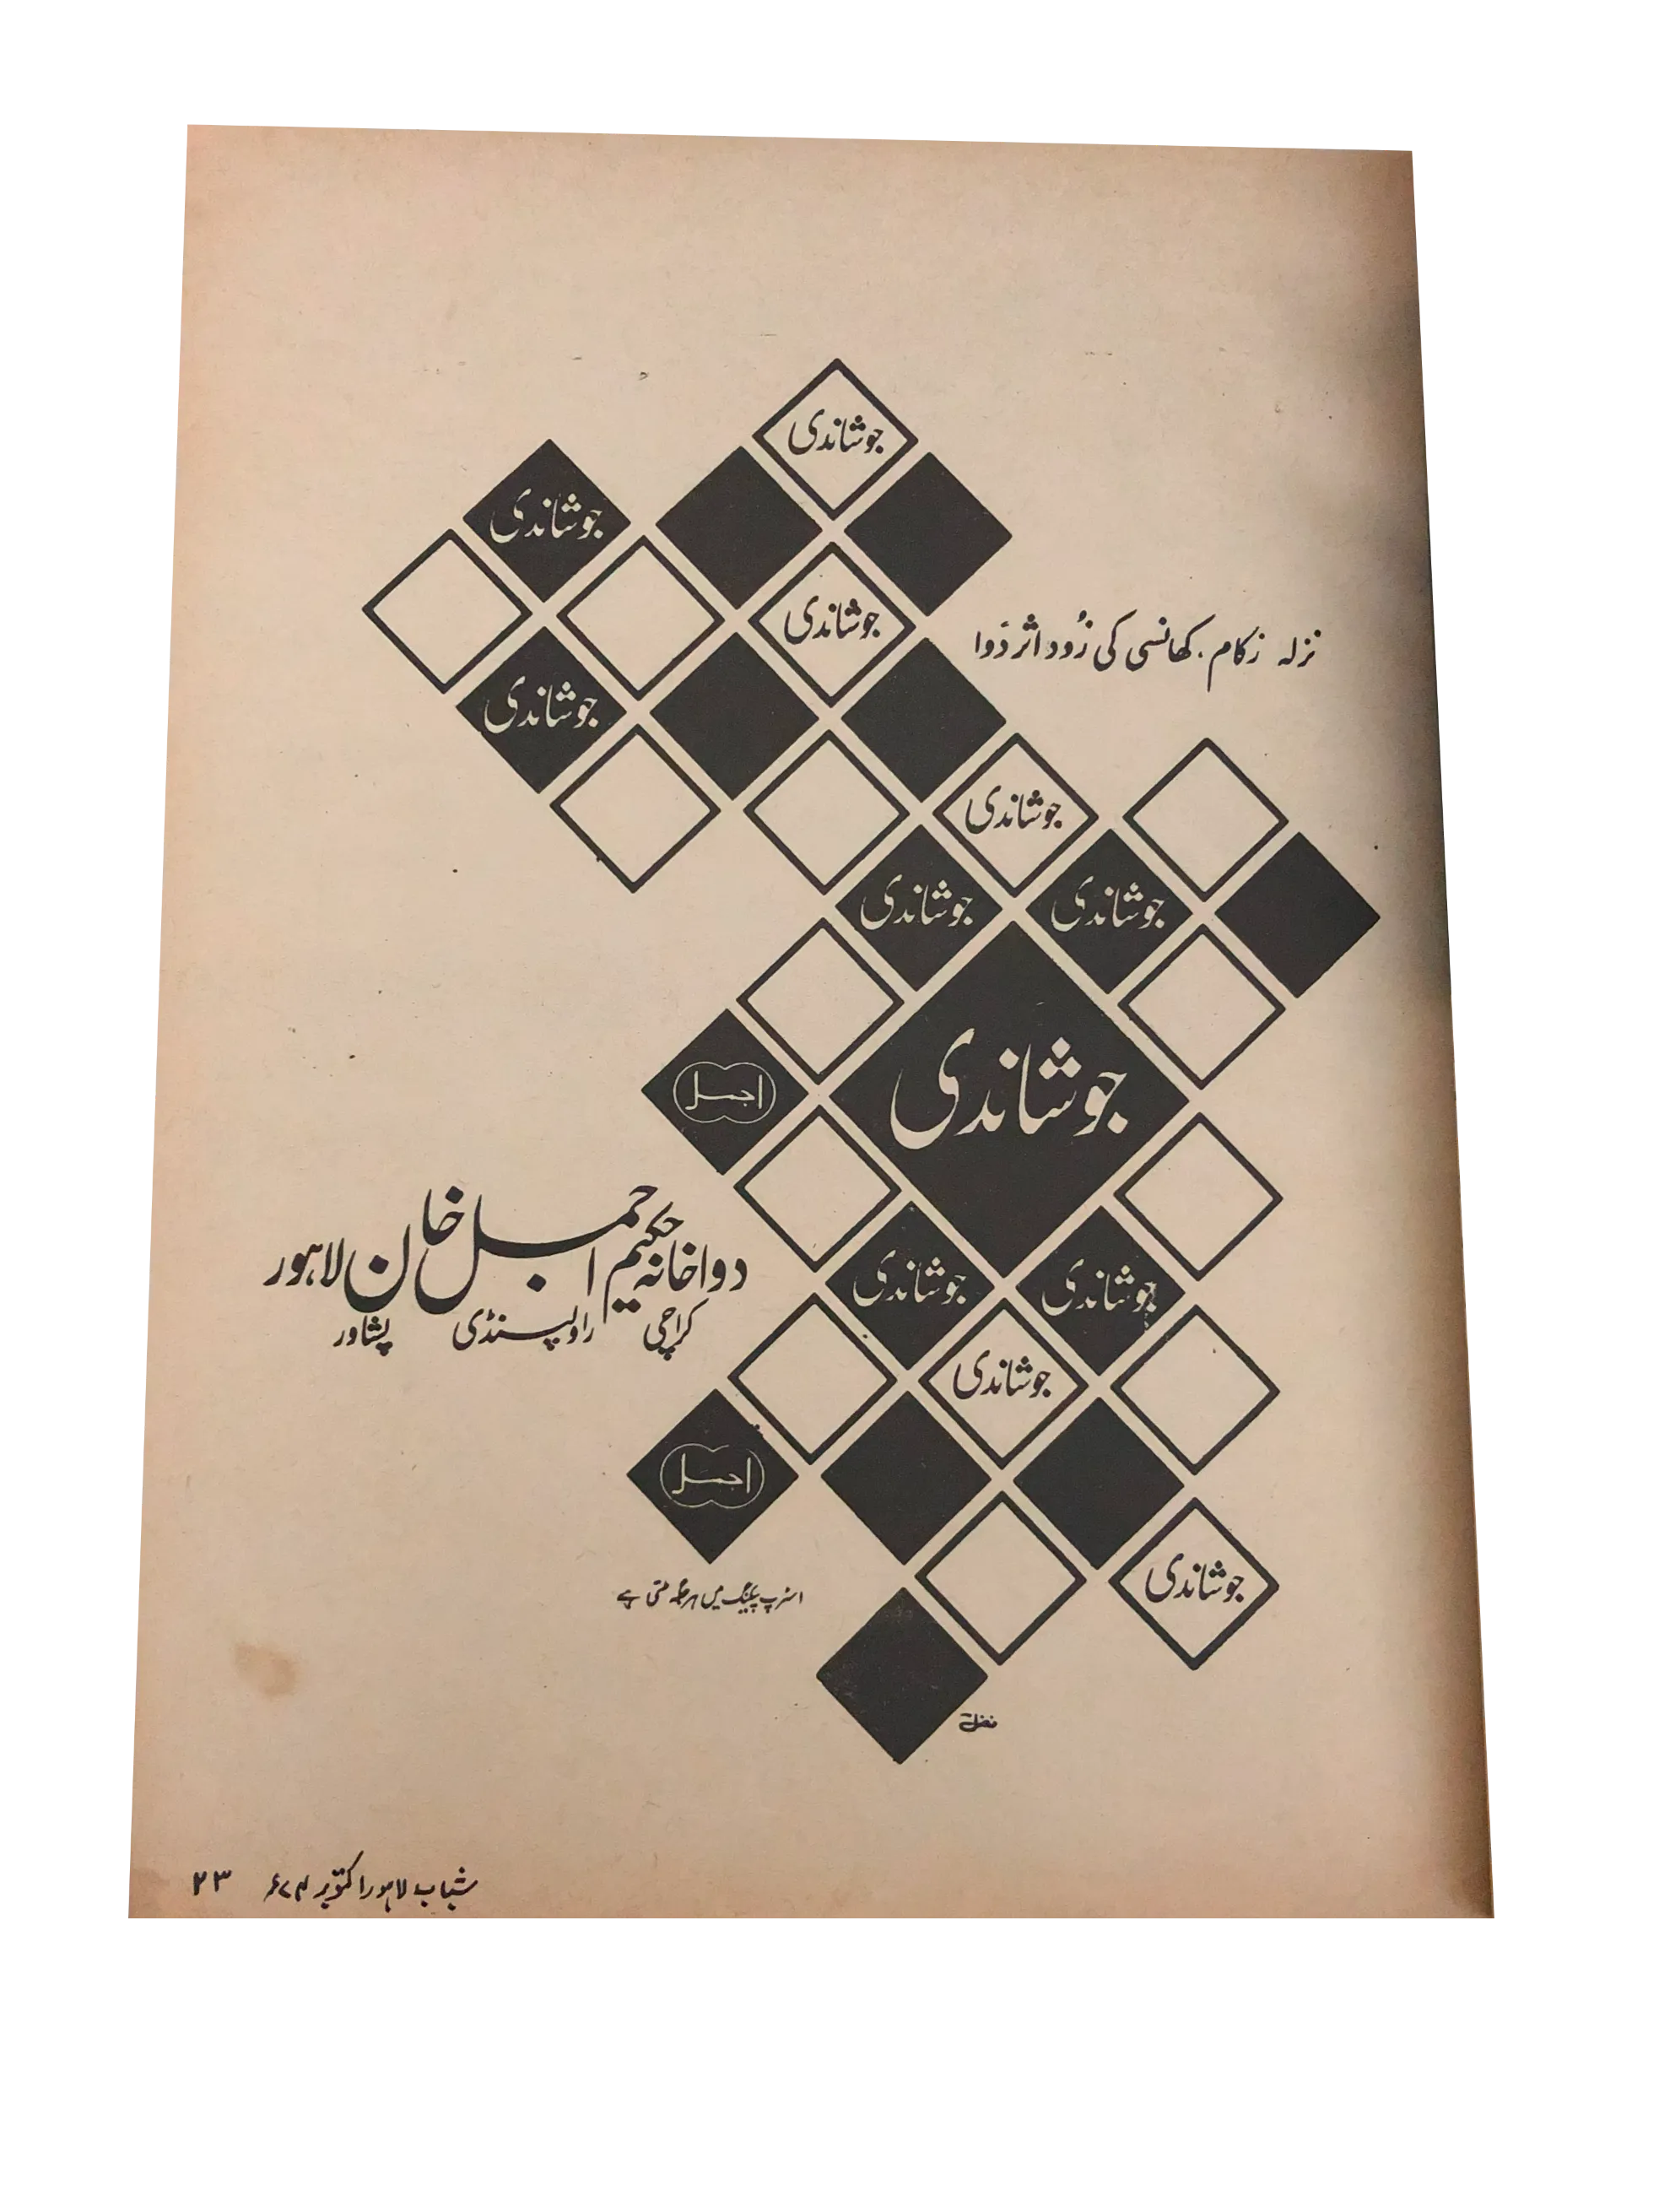 جوشاندی
جوشاندی
جوشاندی
نزلہ زکام. کھانسی کی زُود اثر دَوا
جوشاندی
جوشاندی
جوشاندی
جوشاندی
جوشاندی
اجمل
دواخانہ حکیم اجمل خان لاہور
کراچی راولپنڈی پشاور
جوشاندی
جوشاندی
جوشاندی
اجمل
جوشاندی
اسٹرپ پیکنگ میں ہر جگہ ملتی ہے
شباب لاہور اکتوبر ۷۴ء ۲۳